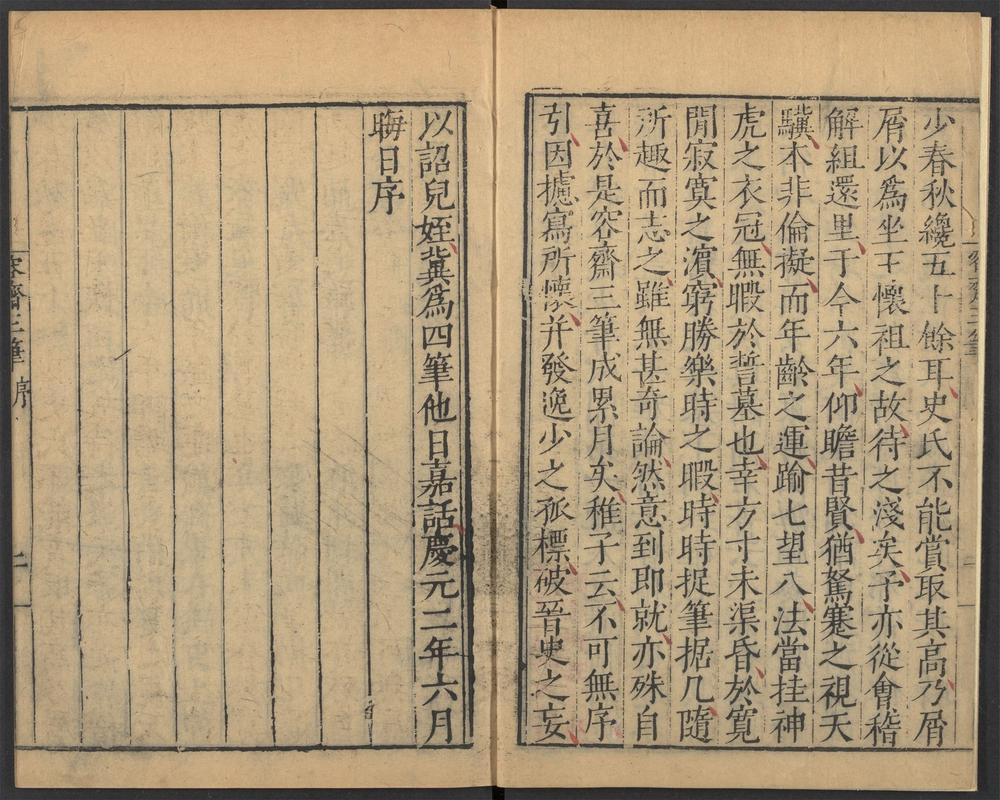 少春秋纔五十餘耳史氏不能賞取其高乃屑
屑以爲坐王懷祖之故待之淺矣予亦從會稽
解組還里于今六年仰瞻昔賢猶駑蹇之視天
驥本非倫擬而年齡之運踰七望八法當挂神
虎之衣冠無暇於誓墓也幸方寸未渠昏於寬
閒寂寞之濵窮勝樂時之暇時時捉筆据几隨
所趣而志之雖無甚奇論然意到即就亦殊自
喜於是容齋三筆成累月矣稚子云不可無序
引因攄寫所懷并發逸少之孤標破晉史之妄
以詔兒姪冀爲四筆他日嘉話慶元二年六月
晦日序
容齋三筆 序
二